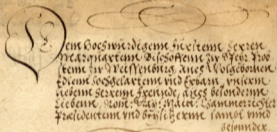 Dem Hochwürdigenn Fürstenn Herren
Marquartenn Bischoffenn zu Speir Pro
stenn zu Weissenburg, auch Volgebornen
unsernn
liebenn Herrenn Freunde, auch besondernn
liebenn, Röm: Kay: Maiet: Cammerrichter
Presidenten und Beysitzernn sampt und
besonder